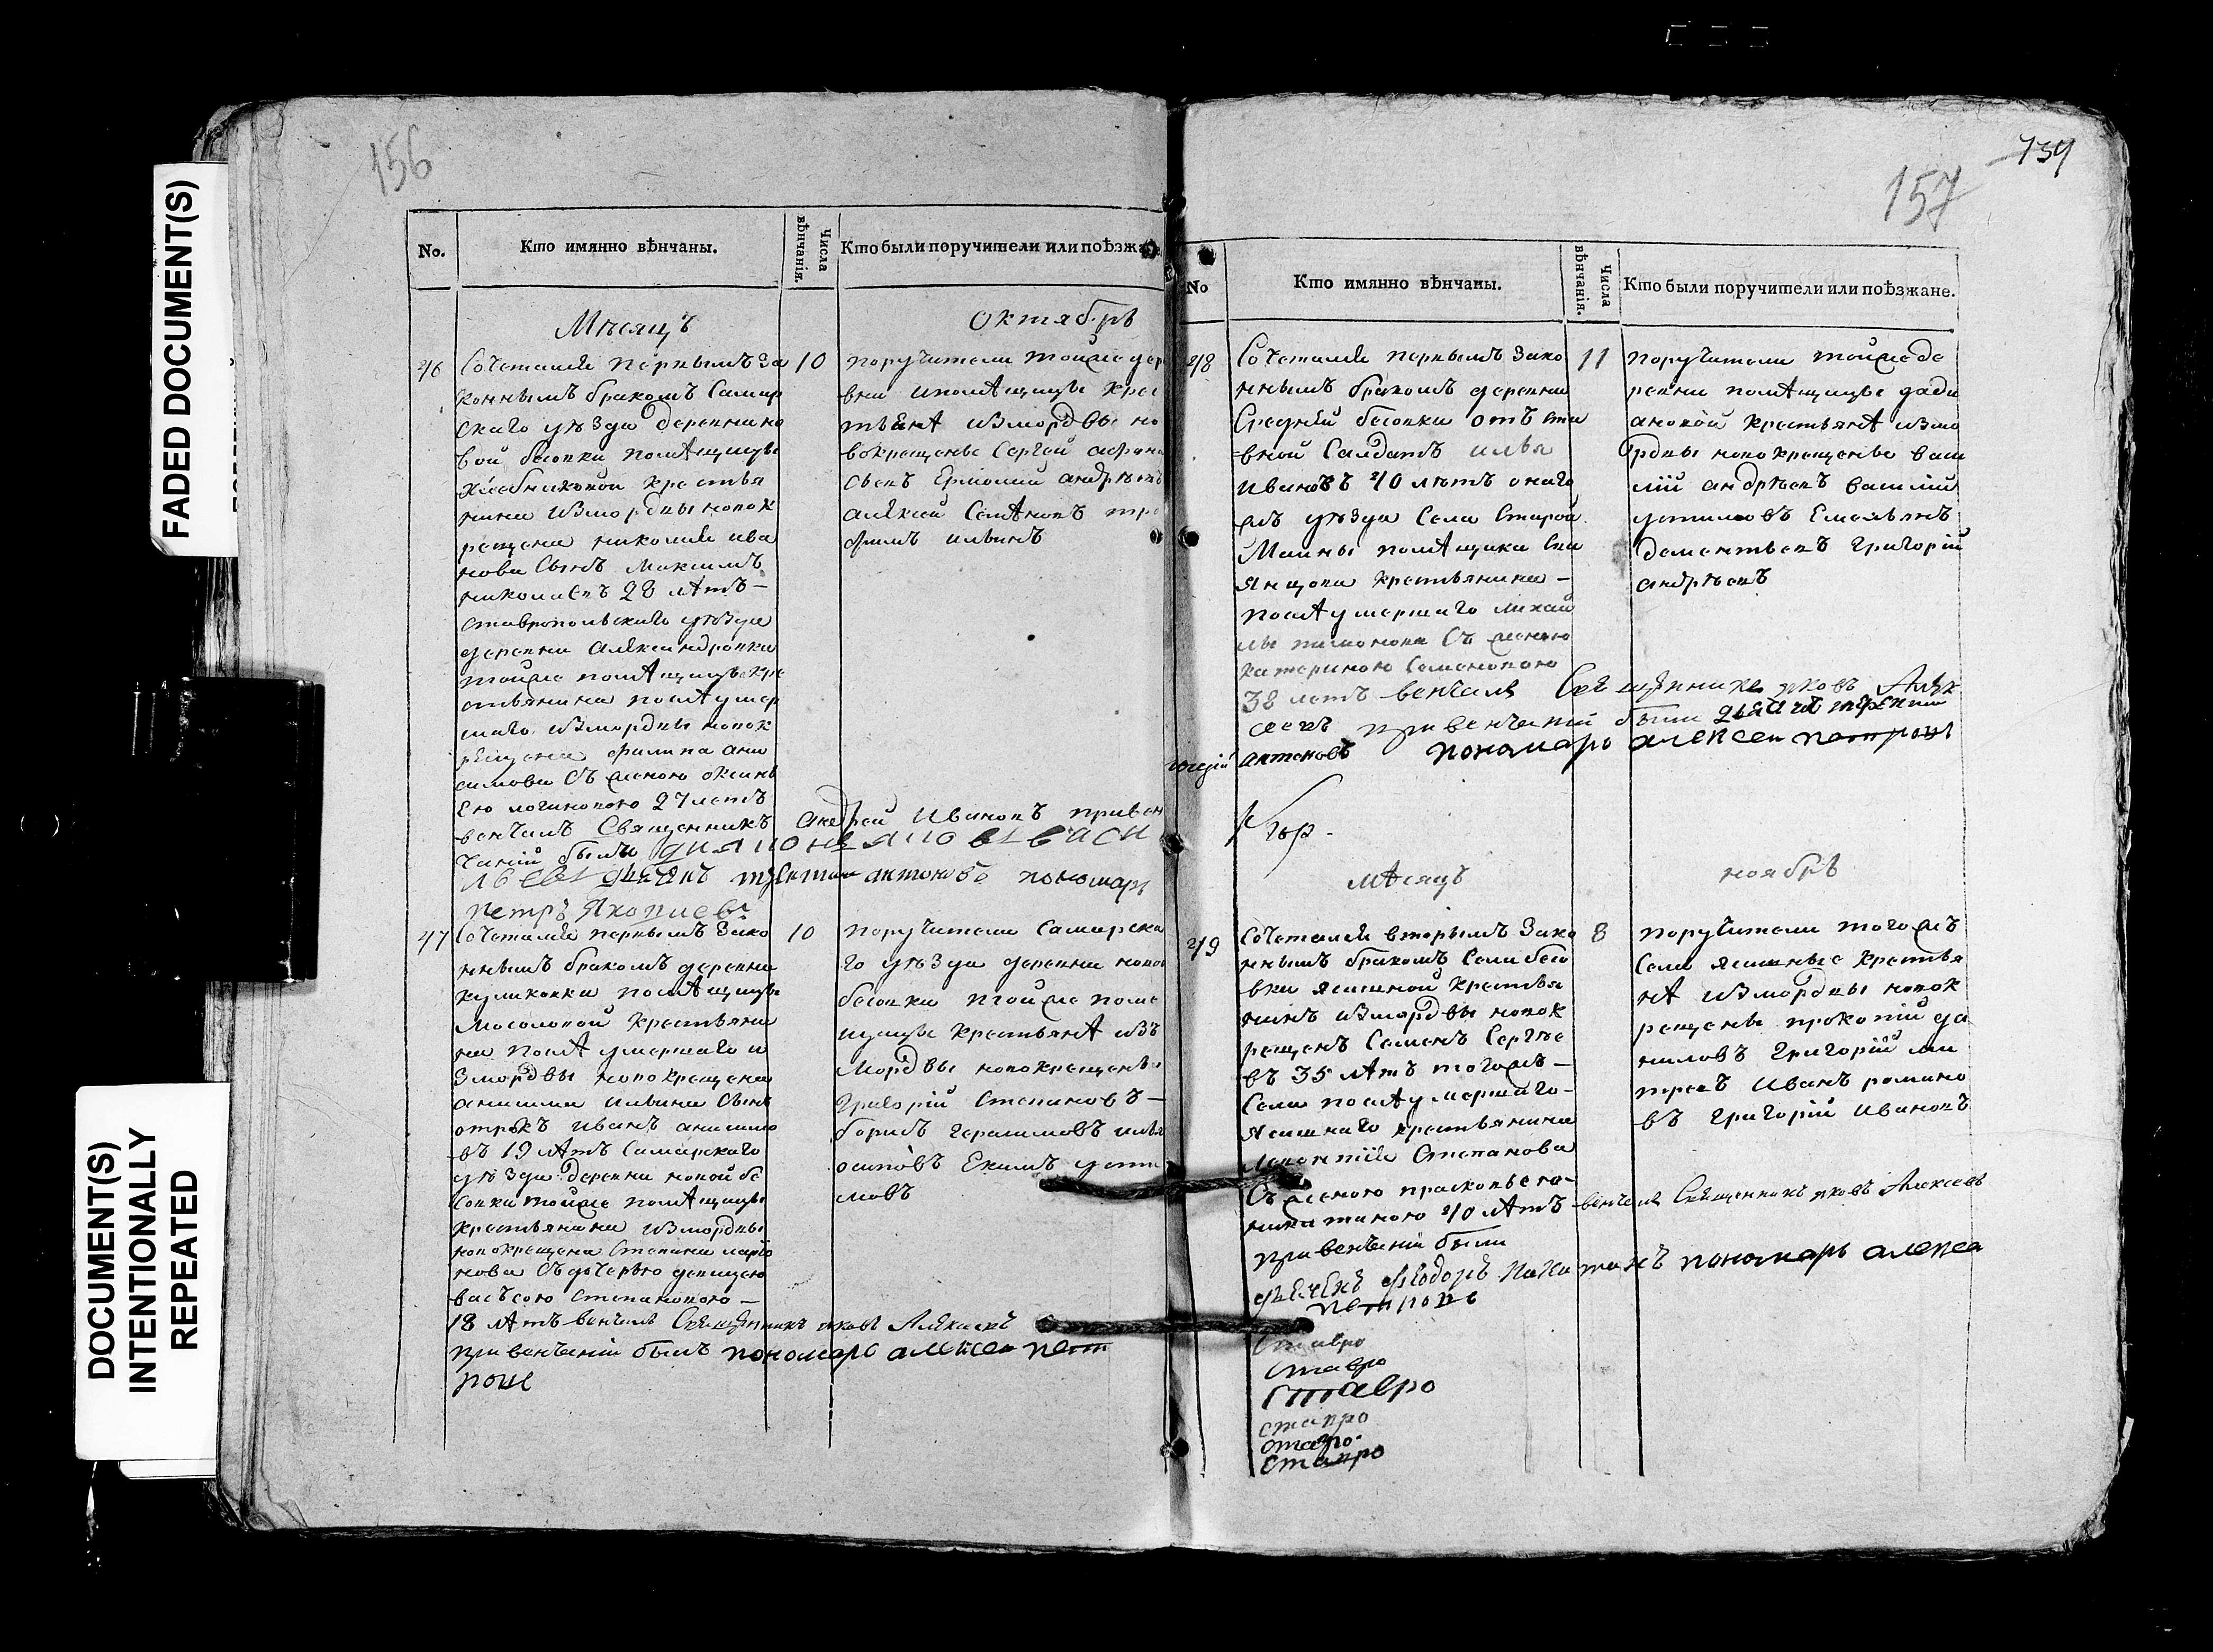 FADED DOCUMENT(S)
DOCUMENT(S)
INTENTIONALLY
REPEATED
156
No.
Кто имянно вѣнчаны.
Числа
вѣнчанія.
Кто были поручители или поѣзжа
Мѣсяцъ
Октябрь
46
Сочетался первымъ за
коннымъ бракомъ Самар
скаго уѣзда деревни но
вой бесовки помѣщицы
крестья
нина измордвы новок
рещена николая ива
нова сынъ Максимъ
николаевъ 28 лѣтъ —
ставропольскаго уѣзда
деревни александровки
тойже помѣщицы кре
стьянина послѣ умер
шаго измордвы новок
рещена филипа ани
симова съ женою оксинь
ею логиновою 27 летъ
венчалъ Священникъ Андрей Ивановъ привен
чаніи были
антоновъ пономарь
петръ
10
поручители тойже дер
вни и помѣщицы крес
тьянѣ измордвы но
вокрещены Сергей
Ермолай андрѣевъ
алексей Семѣновъ тро
фимъ ильинъ
47
Сочетался первымъ зако
ннымъ бракомъ деревни
куликовки помѣщицы
Мосоловой крестьяни
на послѣ умершаго и
змордвы новокрещена
анисима ильина сынъ
отрокъ иванъ анисимо
въ 19 лѣтъ Самарскаго
уѣзда деревни новой бе
совки тойже помѣщицы
крестьянина измордвы
новокрещена Степана
нова съ дочерью девицею
васъсою степановою —
18 лѣтъ венчалъ Священникъ яковъ Алексеевъ
при венчаніи былъ пономарь алексеи пет
ровъ
10
поручители Самарска
го уѣзда деревни новой
бесовки тойже поме
щицы крестьянѣ изъ
мордвы новокрещены
григорій степановъ —
борисъ герасимовъ илья
осиповъ Екимъ усти
мовъ
157
No
Кто имянно вѣнчаны.
Числа
вѣнчанія.
Кто были поручители или поѣзжане.
48
Сочетался первымъ зако
ннымъ бракомъ деревни
Средней бесовки отъ ста
вной Салдатъ илья
ивановъ 40 лѣтъ онаго
жъ уѣзда Села Старой
Маины помѣщика
крестьянина —
послѣ умершаго михай
лы съ женою
катериною Семеновою
38 летъ венчалъ Священникъ яковъ Алек
сеевъ при венчаніи были
антоновъ пономарь алексеи петровъ
11
поручители тойже де
ревни помѣщицы
крестьянѣ измо
рдвы новокрещены васи
лій андрѣевъ василій
устиновъ Емельянъ
дементьевъ григорій
андрѣевъ
мѣсяцъ
ноябрь
49
Сочетался вторымъ зако
ннымъ бракомъ Села бесо
вки ясашной крестья
нинъ измордвы новок
рещенъ Семенъ Сергѣе
въ 35 лѣтъ тогожъ —
Села послѣ умершаго —
ясашнаго крестьянина
Степанова
съ женою прасковьею —
никитиною 40 лѣтъ венчалъ Священникъ яковъ Алексеевъ
при венчаніи были
дьячекъ феодоръ пономарь алексеи
петровъ
8
поручители тогожъ
Села ясашные крестья
нѣ измордвы новок
рещены прокопій да
ниловъ григорій ми
треевъ иванъ романо
въ григорій ивановъ
ставро
ставро
ставро
ставро
ставро
ставро